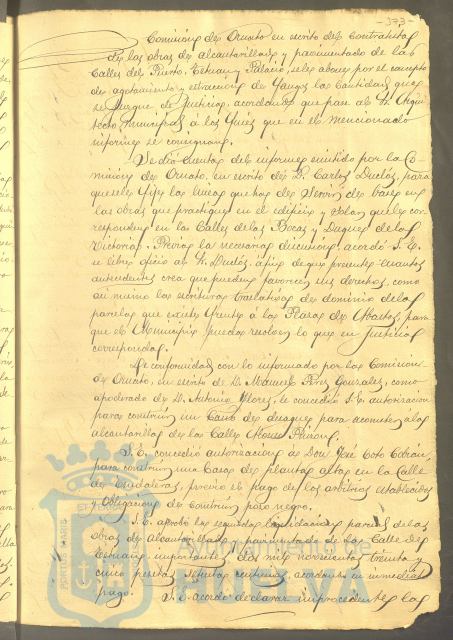 -373-
Comisión de Ornato en escrito del Contratista
de las obras de alcantarillado y pavimentado de las
Calles del Puerto, Tetuan y Palacio, se les abone por el concepto
de agotamiento y extracción de fangos las cantidades que
se juzgue de justicia, acordandose que pase al Sr. Arqui
tecto municipal a los fines que en el mencionado
informe se consignan.
Se dió cuenta del informe emitido por la Co-
misión de Ornato, en escrito de D. Carlos Duclós, para
que se les fije las lineas que han de servir de base en
las obras que practique en el edificio y solar que les cor
responden en las Calles de las Bocas y Duque de la
Victoria. Previa la necesaria discusión, acordó S.E.
se libre oficio al Sr. Duclós, a fin de que presente cuantos
antecedentes crea que puedan favorecer sus derechos, como
asi mismo las escrituras traslativas de dominio de la
parcela que existe frente a la Plaza de Abastos, para
que el Municipio pueda resolver lo que en Justicia
corresponda.
De conformidad con lo informado por la Comisión
de Ornato, en escrito de D. Manuel Perez Gonzalez, como
apoderado de D. Antonio Mora, le concedió S.E. autorización
para construir un Caño de desague para acometer a la
alcantarilla de la Calle Alonso Pinzon.
S.E. concedio autorización a Don José Coto Cobián,
para construir una Casa de planta alta en la Calle
de, previo el pago de los arbitrios establecidos
y obligación de construir pozo negro.
S.E. aprobó la segunda liquidación parcial de las
obras de alcantarillado y pavimentado de la Calle de
Tetuan, importante, dos mil novecientas treinta y
cinco pesetas setenta centimos, acordandose su inmediato
pago.
S.E. acordó declarar improcedente las
PORTUS MARIS
Ayuntamiento de
HUELVA